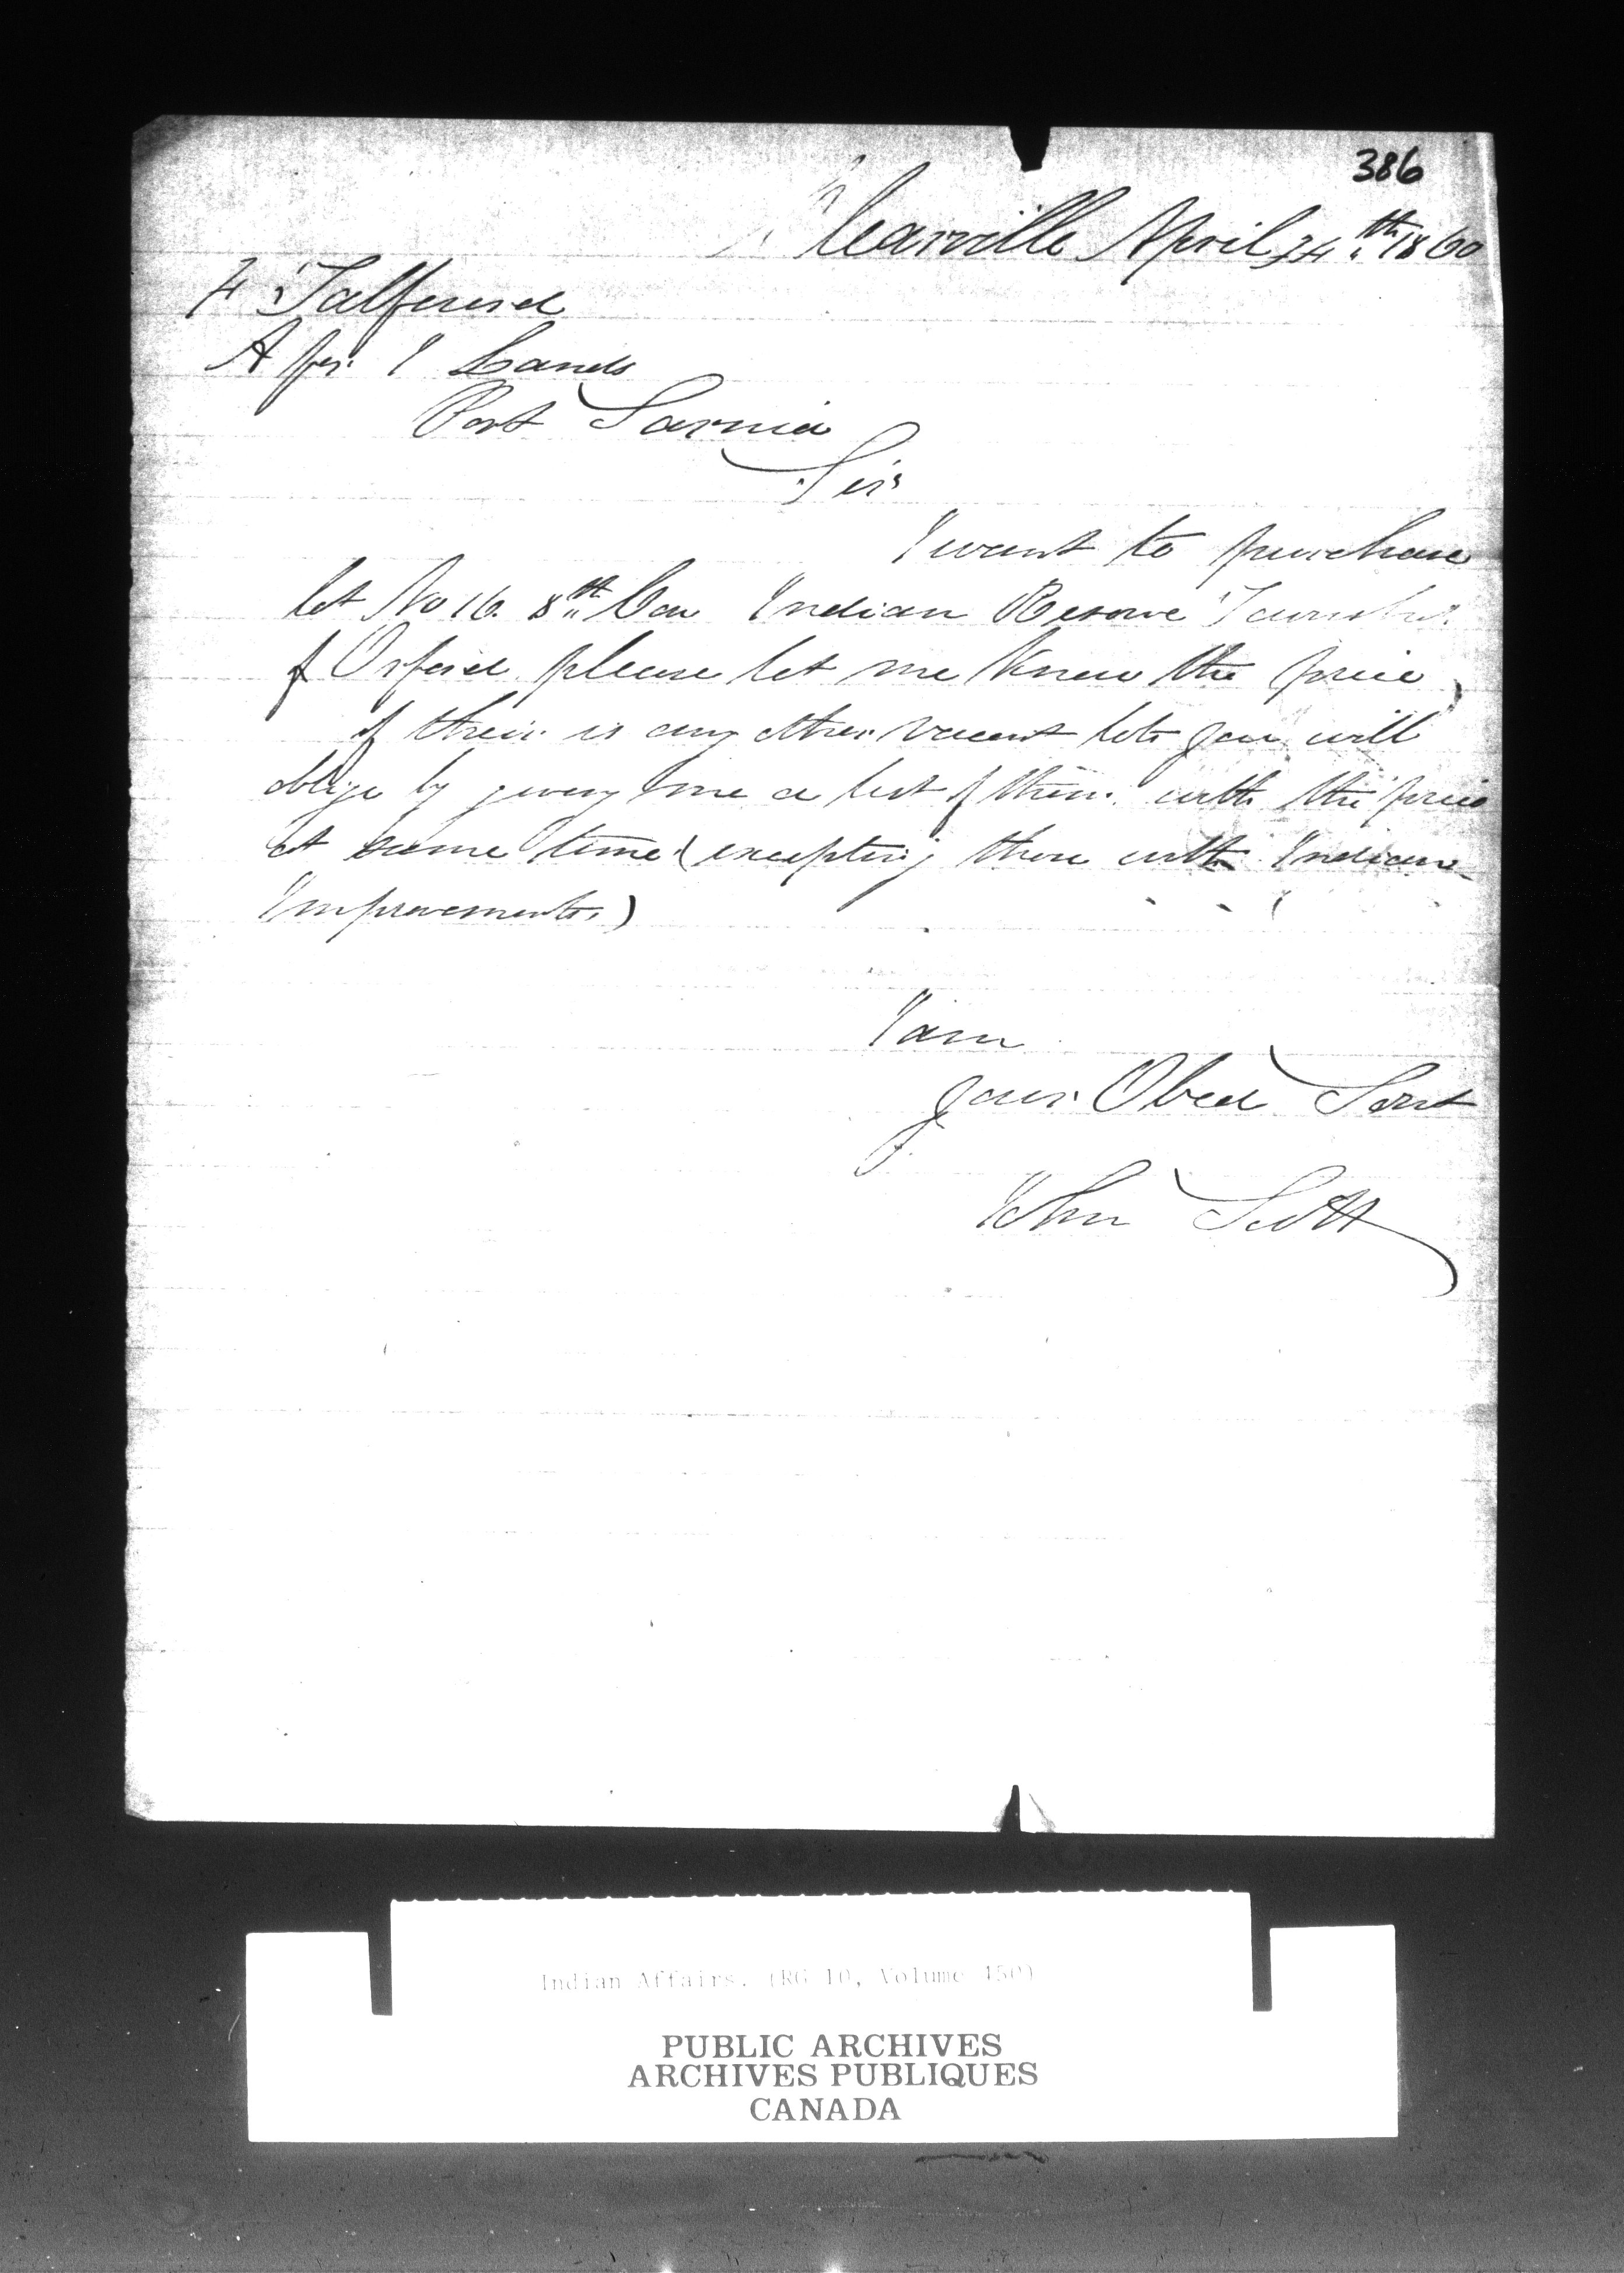 386
Clearville April 24th 1860
F Talfourd
A for I Lands
Port Sarnia
Sir
I want to purchase
lot No 16. 8th Con Indian Reserve Township
of Orford please let me know the price
if their is any other vacant lots you will
oblige by giving me a list of them with the price
at same time (excepting those with Indian
Improvements)
I am
your Obed Servt
John Scott
Indian Affairs. (RG 10, Volume 450)
PUBLIC ARCHIVES
ARCHIVES PUBLIQUES
CANADA